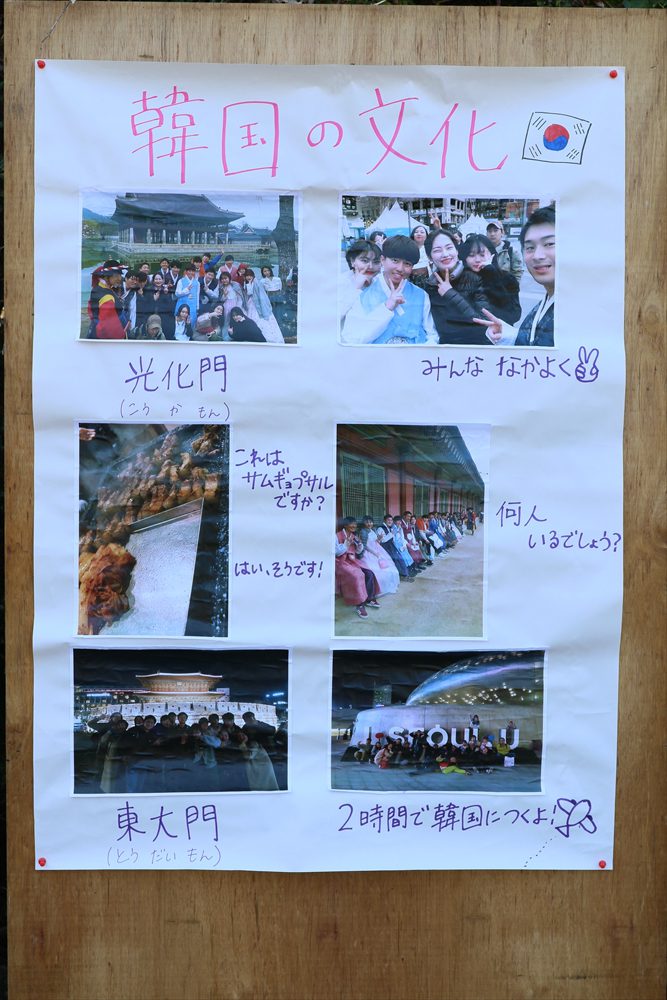 韓国の文化
光化門
(こう か もん)
みんな なかよく
これは
サムギョプサル
ですか?
はい、そうです!
何人
いるでしょう?
I SEOUL U
東大門
(とう だい もん)
2時間で韓国につくよ!